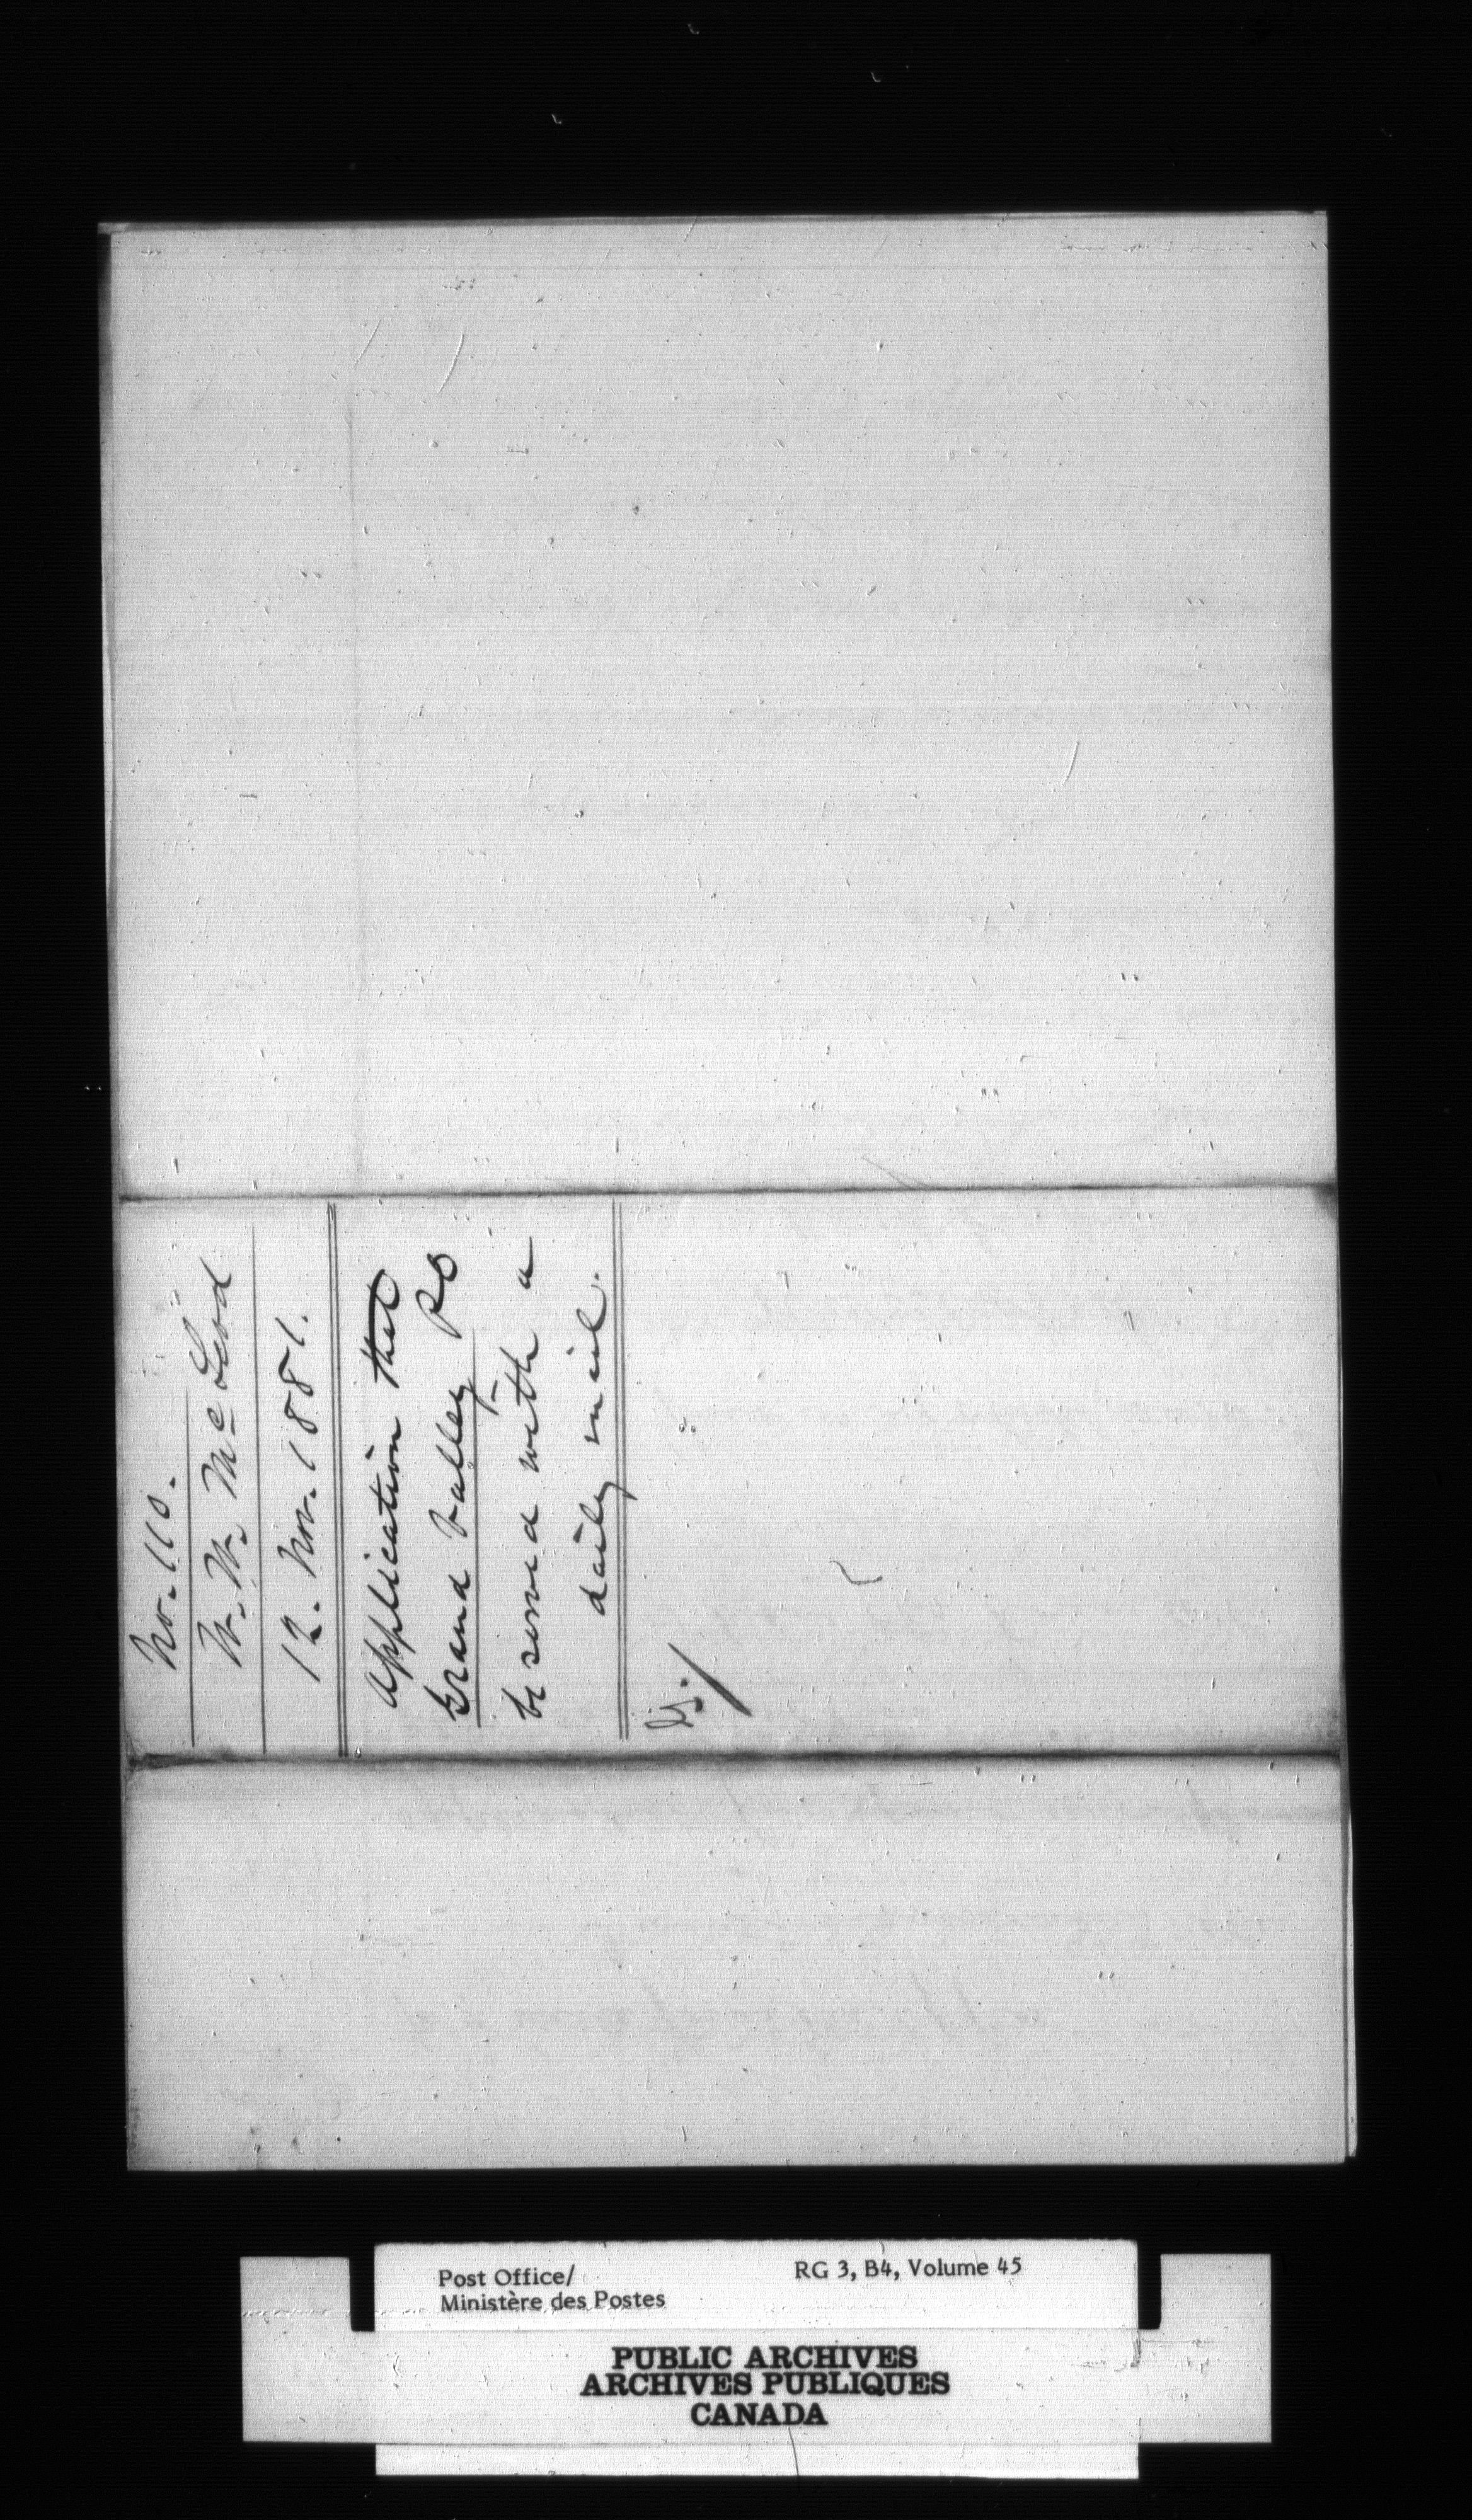 No. 110.
W. W. McLeod
12. Nov. 1881.
Application that
Grand Valley PO
be served with a
daily mail.
Post Office/
Ministère des Postes
RG 3, B4, Volume 45
PUBLIC ARCHIVES
ARCHIVES PUBLIQUES
CANADA